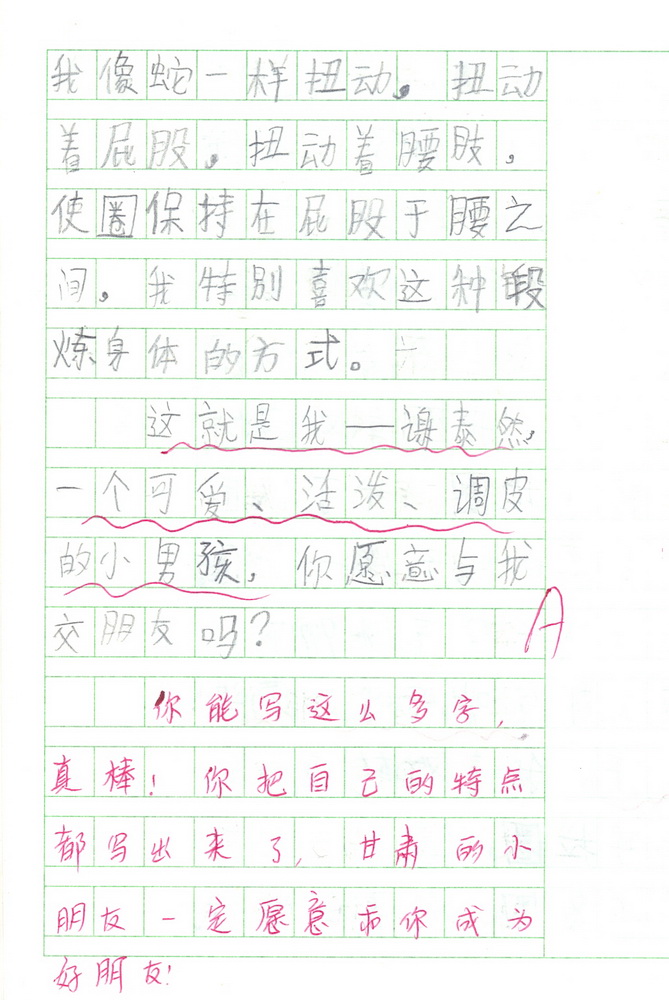 我像蛇一样扭动。扭动
着屁股，扭动着腰肢，
使圈保持在屁股于腰之
间，我特别喜欢这种锻
炼身体的方式。
这就是我——谢泰然，
一个可爱、活泼、调皮
的小男孩，你愿意与我
交朋友吗？
A
你能写这么多字，
真棒！你把自己的特点
都写出来了，甘肃的小
朋友一定愿意和你成为
好朋友！